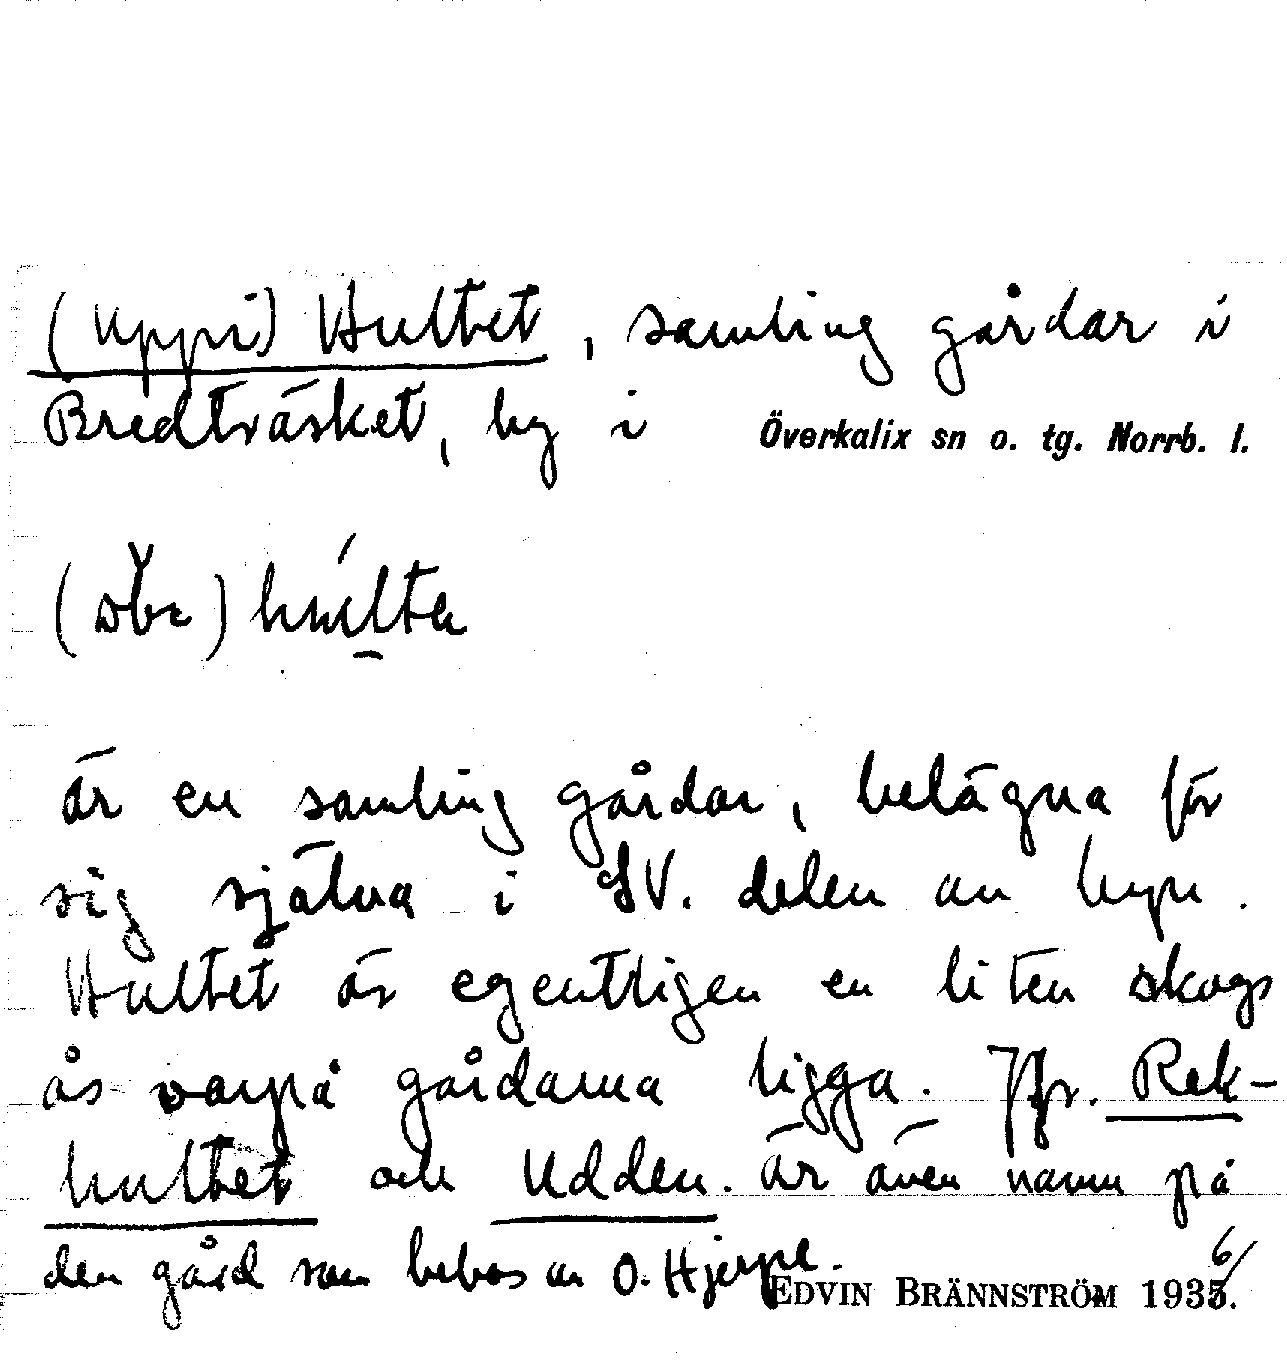 (Uppi) Hultet, samling gårdar i
Bredträsket, by i Överkalix sn o. tg. Norrb. l.
är en samling gårdar, belägna för
sig själva i SV. delen av byn.
Hultet är egentligen en liten skogs
ås varpå gårdarna ligga. Jfr. Rek-
hultet och Udden. är även namn på
den gård som bebos av O. Hjerpe.
EDVIN BRÄNNSTRÖM 1936.